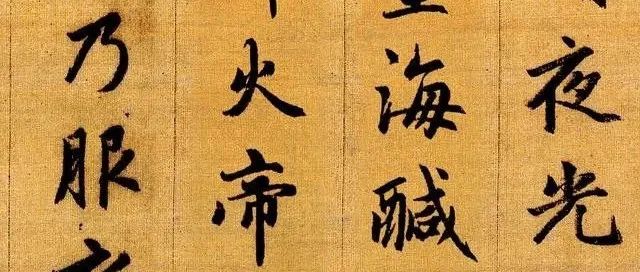 夜光
海醎
火帝
乃服